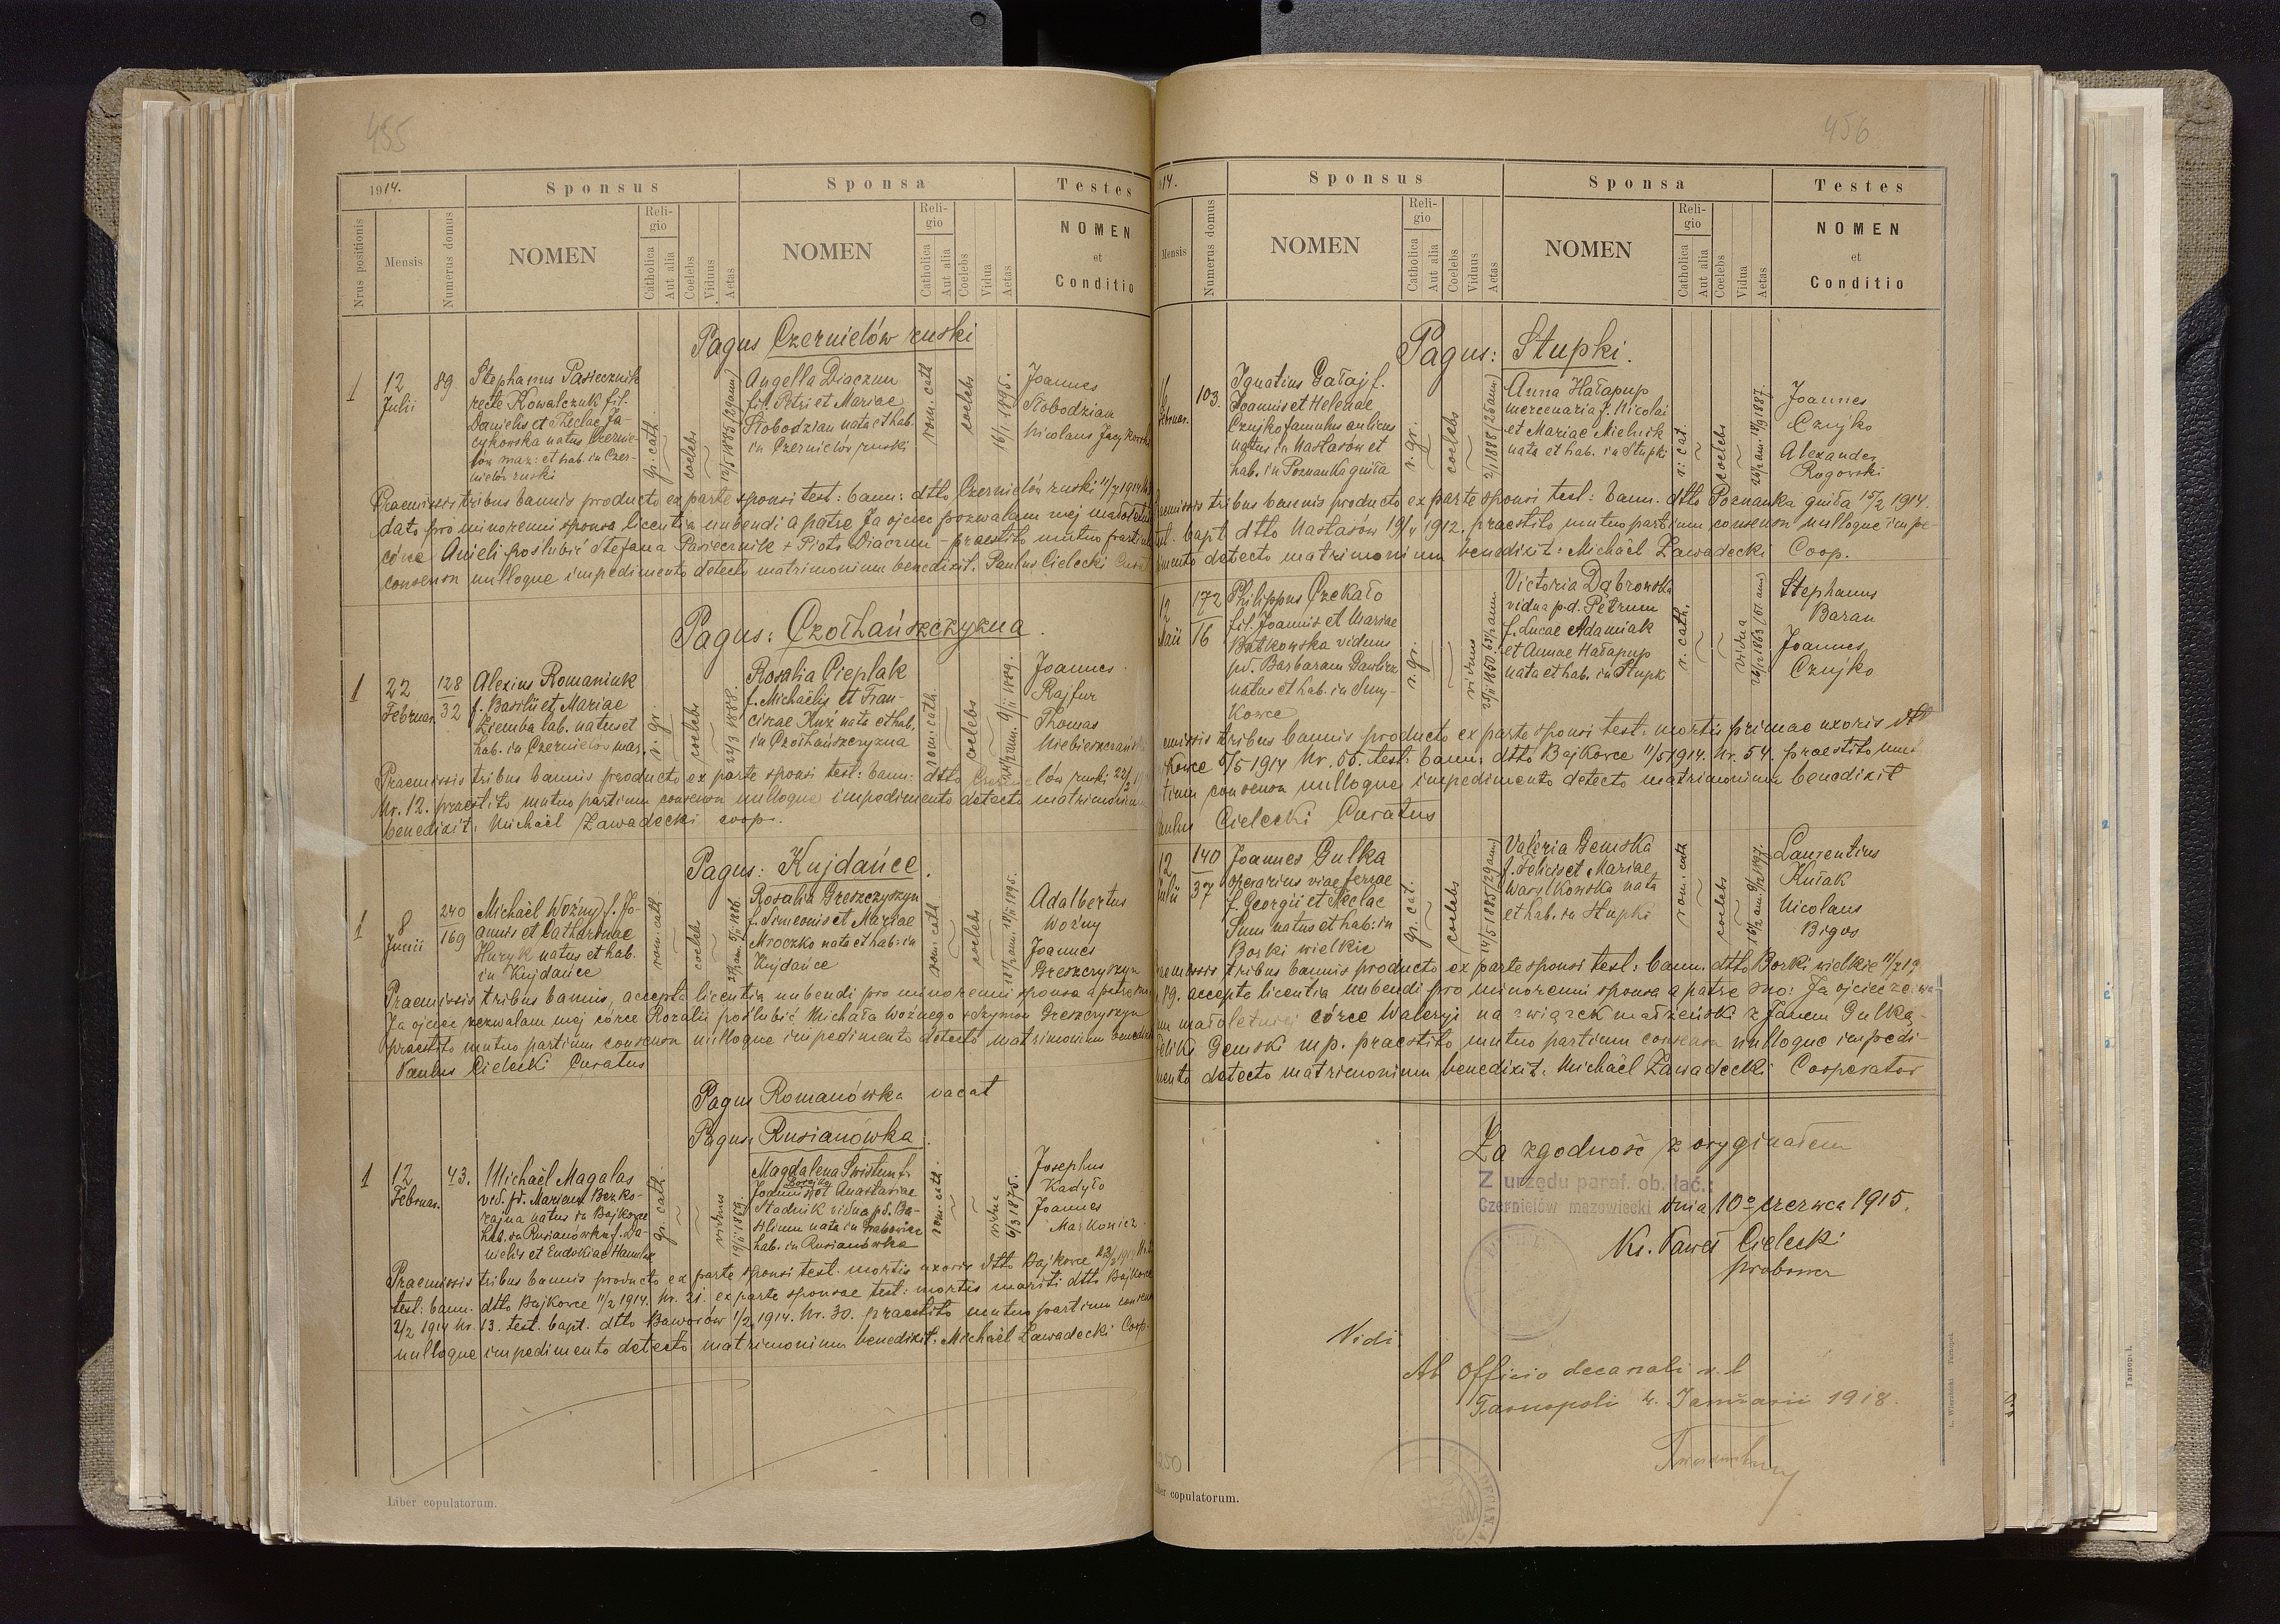 455
1914.
Sponsus
Sponsa
Testes
Nrus positionis
Mensis
Numerus domus
NOMEN
Religio
Catholica
Aut alia
Coelebs
Viduus
Aetas
NOMEN
Religio
Catholica
Aut alia
Coelebs
Vidua
Aetas
NOMEN
et
Conditio
Pagus Czernielów ruski
1
12
Julii
89
Stephanus Pasiecznik
recte Kowalczuk fil.
Danielis et Theclae Ja
cykowska natus Czernie-
lów maz: et hab. in Czer-
nielów ruski
gr. cath.
coelebs
12/5 1885 (29 ann)
Angella Diaczun
fil. Petri et Mariae
Słobodzian nata et hab.
in Czernielów ruski
rom. cath
coelebs
16/1 1895.
Joannes
Słobodzian
Nicolaus Jacykowski
Praemissis tribus bannis producto ex parte sponsi test: bann: dtto Czernielów ruski 11/7 1914
dato pro minorenni sponsa licentia nubendi a patre Ja ojciec pozwalam mej małoletniej
córce Anieli poślubić Stefana Pasiecznik + Piotr Diaczun – praestito mutuo partium
consensu nulloque impedimento detecto matrimonium benedixit. Paulus Cielecki Curat
Pagus: Czołhańszczyzna.
1
22
Februar.
128
32
Alexius Romaniuk
f. Basilii et Mariae
Ziemba lab. natus et
hab. in Czernielów maz.
r. gr.
coelebs
22/3 1888.
Rosalia Cieplak
f. Michaëlis et Fran-
ciscae Kuź nata et hab.
in Czołhańszczyzna
rom. cath.
coelebs
24 1/2 ann. 9/11 1889.
Joannes
Rajfur
Thomas
Niebieszczański
Praemissis tribus bannis producto ex parte sponsi test: bann: dtto Czernielów ruski 22/2
Nr. 12. praestito mutuo partium consensu nulloque impedimento detecto matrimonium
benedixit: Michaël Zawadecki coop.
Pagus: Kujdańce.
1
8
Junii
240
169
Michaël Woźny f. Jo-
annis et Catharinae
Huryk natus et hab.
in Kujdańce
rom. cath
coelebs
Rosalia Greszczyszyn
f. Simeonis et Mariae
Mroczko nata et hab: in
Kujdańce
rom: cath
coelebs
Adalbertus
Woźny
Joannes
Greszczyszyn
Praemissis tribus bannis, accepta licentia nubendi pro minorenni sponsa a patre suo
Ja ojciec zezwalam mej córce Rozalii poślubić Michała Woźnego + Szymon Greszczyszyn
praestito mutuo partium consensu nulloque impedimento detecto matrimonium benedixit
Paulus Cielecki Curatus
Pagus Romanówka vacat
Pagus: Rusianówka.
1
12
Februar.
43.
Michaël Magalas
vid. pd. Mariam Bezko-
rajna natus in Bajkowce
hab. in Rusianówka f. Da-
nielis et Eudokiae Hawryluk
gr. cath.
viduus
19/11 1869.
Magdalena Świstun f.
Joannis et Anastasiae
Stadnik vidua pd. Ba-
silium nata in Grabowiec
hab. in Rusianówka
rom. cath.
vidua
6/3 1875.
Josephus
Kadyło
Joannes
Markowicz
Praemissis tribus bannis producto ex parte sponsi test. mortis uxoris dtto Bajkowce
test: bann. dtto Bajkowce 11/2 1914. Nr. 21. ex parte sponsae test: mortis mariti dtto Bajkowce
2/2 1914 Nr. 13. test. bapt. dtto Baworów 1/2 1914. Nr. 30. praestito mutuo partium consensu
nulloque impedimento detecto matrimonium benedixit: Michaël Zawadecki Coop.
Liber copulatorum.
456
14.
Sponsus
Sponsa
Testes
Mensis
Numerus domus
NOMEN
Religio
Catholica
Aut alia
Coelebs
Viduus
Aetas
NOMEN
Religio
Catholica
Aut alia
Coelebs
Vidua
Aetas
NOMEN
et
Conditio
Pagus: Stupki.
16
Februar.
103.
Ignatius Gałaj f.
Joannis et Helenae
Czujko famulus aulicus
natus in Nastasów et
hab. in Poznanka gniła
r. gr.
coelebs
2/1 1888 (26 ann)
Anna Hałapup
mercenaria f. Nicolai
et Mariae Mielnik
nata et hab. in Stupki
r. cat.
coelebs
Joannes
Czujko
Alexander
Rogowski
Praemissis tribus bannis producto ex parte sponsi test: bann. dtto Poznanka gniła 15/2 1914.
test. bapt dtto Nastasów 19/4 1912. praestito mutuo partium consensu nulloque impe-
dimento detecto matrimonium benedixit: Michaël Zawadecki Coop.
12
Maii
172
16
Philippus Czekało
fil. Joannis et Mariae
Batkowska viduus
pd. Barbaram Gawlicz
natus et hab. in Smy-
kowce
r. gr.
viduus
Victoria Dąbrowska
vidua p.d. Petrum
f. Lucae Adamiak
et Annae Hałapup
nata et hab. in Stupki
r. cath.
vidua
Stephanus
Baran
Joannes
Czujko
Praemissis tribus bannis producto ex parte sponsi test: mortis primae uxoris dtto
5/5 1914 Nr. 55. test: bann: dtto Bajkowce 11/5 1914. Nr. 54. praestito mutuo
partium consensu nulloque impedimento detecto matrimonium benedixit
Paulus Cielecki Curatus
12
Julii
140
37
Joannes Gulka
operarius viae ferrae
f. Georgii et Theclae
Sum natus et hab: in
Borki wielkie
gr. cat.
coelebs
14/5 1885 (29 ann)
Valeria Gemska
f. Felicis et Mariae
Wasylkowska nata
et hab. in Stupki
rom. cath
coelebs
Laurentius
Kułak
Nicolaus
Bigos
Praemissis tribus bannis producto ex parte sponsi test: bann. dtto Borki wielkie 11/7 19
accepta licentia nubendi pro minorenni sponsa a patre suo: Ja ojciec zezwa-
lam małoletniej córce Waleryi na związek małżeński z Janem Gulką.-
Feliks Gemski mp. praestito mutuo partium consensu nulloque impedi-
mento detecto matrimonium benedixit: Michaël Zawadecki Cooperator
Za zgodność z oryginałem
Z urzędu paraf. ob. łać.:
Czernielów mazowiecki dnia 10go czerwca 1915.
Ks. Paweł Cielecki
proboszcz
Vidi.
Ab Officio decanali r. l
Tarnopoli 4. Januarii 1918.
Liber copulatorum.
L. Wierzbicki Tarnopol.
Tarnopol.